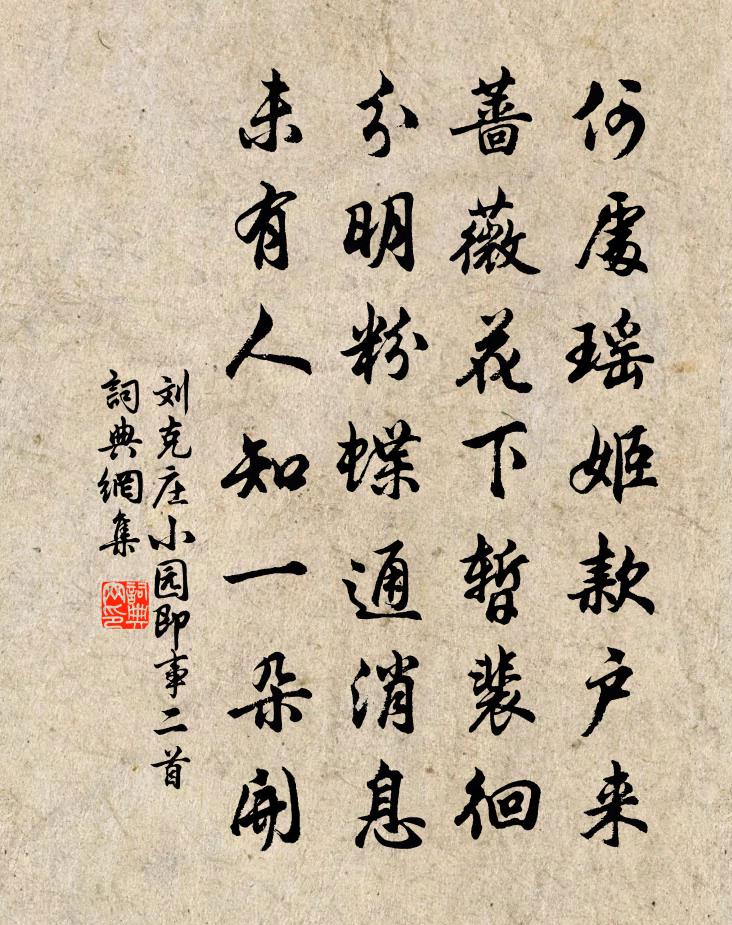 何處瑶姬款户来
薔薇花下暫裴徊
分明粉蝶通消息
未有人知一朵開
刘克庄小园即事二首
詞典網集
詞典網印